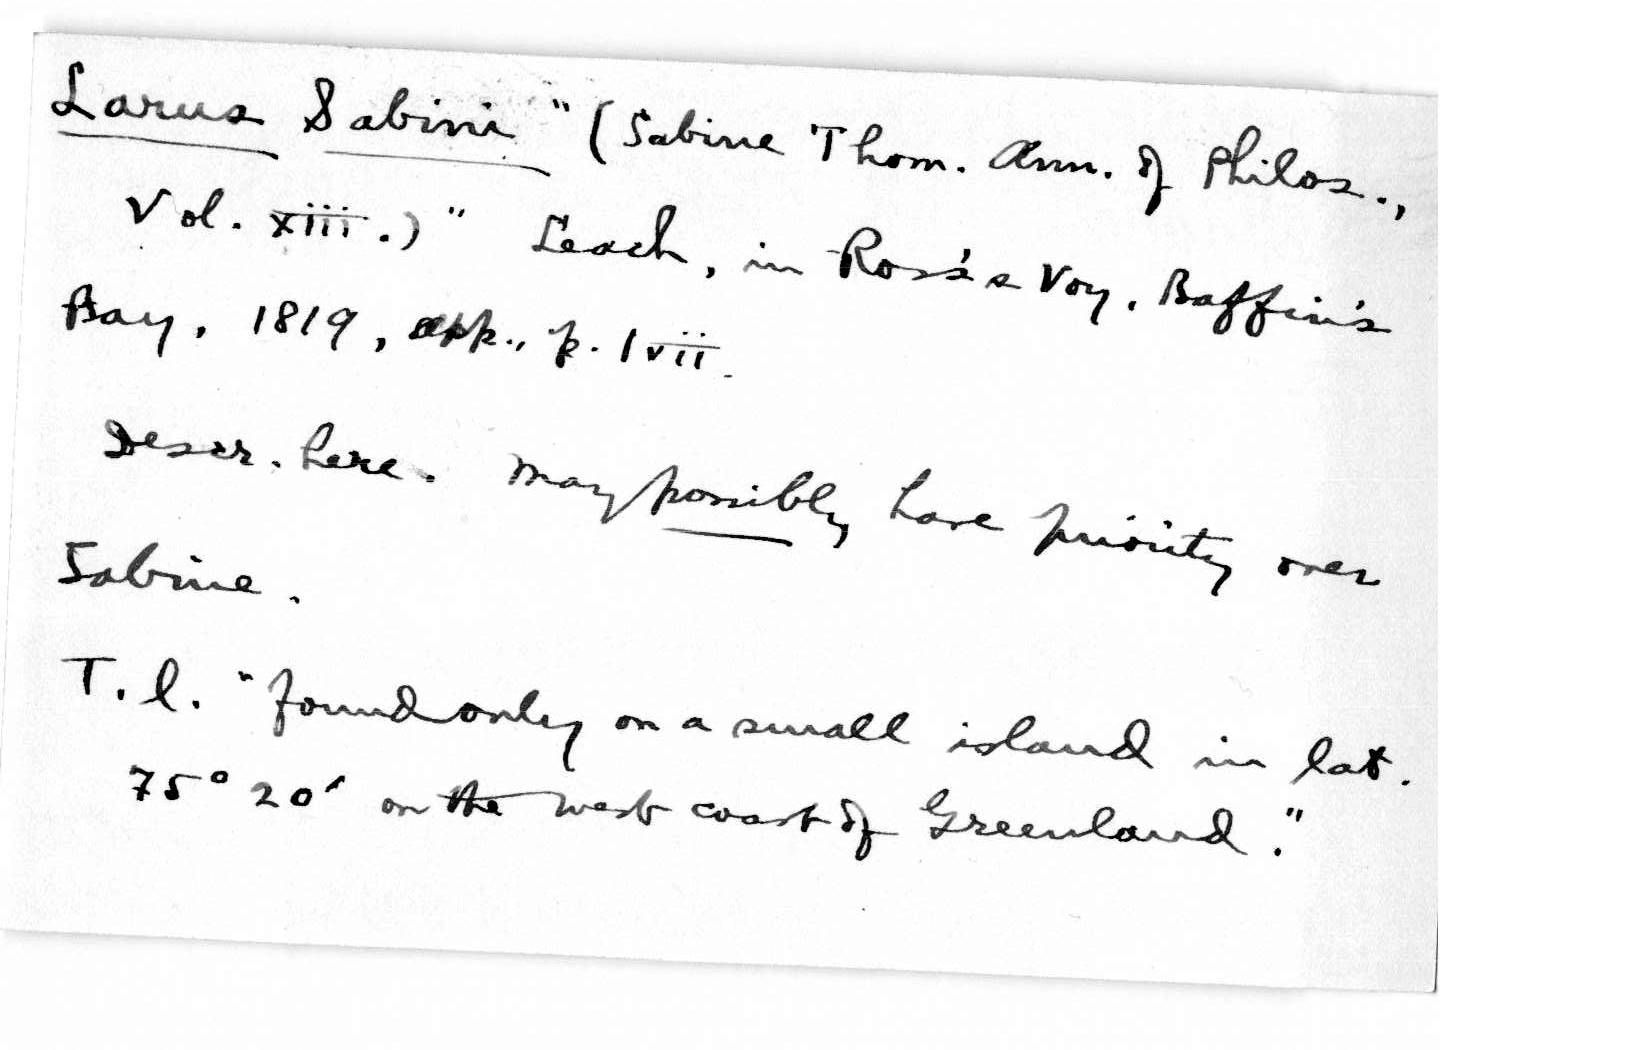 Larus Sabini " (Sabine Thom. Ann. of Philos.,
Vol. xiii.)" Leach, in Ross's Voy. Baffin's
Bay, 1819, app., p. lvii.
Descr. here. May possibly have priority over
Sabine.
T. l. "found only on a small island in lat.
75° 20' on the west coast of Greenland."